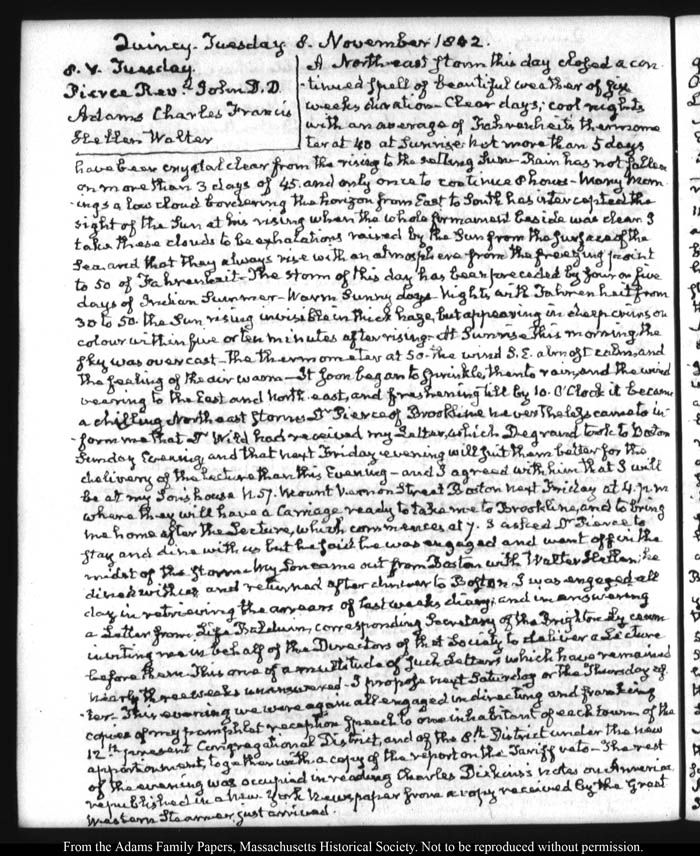 Quincy. Tuesday 8. November 1842.
8. V. Tuesday.
Pierce Rev.d John D.D.
Adams Charles Francis
Hellen Walter
A North-east storm this day closed a con-
-tinued spell of beautiful weather of six
weeks duration—Clear days; cool nights
with an average of Fahrenheit's thermome
ter at 40 at Sunrise. Not more than 5 days
have been crystal clear from the rising to the setting Sun—Rain has not fallen
on more than 3 days of 45. and only once to continue 8 hours—Many morn-
-ings a low cloud bordering the horizon from East to South has intercepted the
sight of the Sun at his rising when the whole firmament beside was clear. I
take these clouds to be exhalations raised by the Sun from the surface of the
Sea. and that they always rise with an atmosphere from the freezing point
to 50 of Fahrenheit—The storm of this day has been preceded by four or five
days of Indian Summer—Warm Sunny days—Nights with Fahrenheit from
30 to 50. the Sun rising invisible in thick haze, but appearing in deep crimson
colour within five or ten minutes after rising—At Sunrise this morning, the
sky was overcast—The thermometer at 50—The wind S.E. almost calm, and
the feeling of the air warm—It soon began to sprinkle, then to rain, and the wind
veering to the East and North east, and freshening till by 10. O'Clock it became
a chilling North east Storm. Dr Pierce of Brookline nevertheless came to in-
-form me that Dr Wild had received my Letter, which Degrand took to Boston
Sunday Evening, and that next Friday evening will suit them better for the
delivery of the Lecture than this Evening—and I agreed with him that I will
be at my Son's house N. 57. Mount Vernon Street Boston next Friday at 4. p.m
where they will have a Carriage ready to take me to Brookline, and to bring
me home after the Lecture, which commences at 7. I asked Dr Pierce to
stay and dine with us but he said he was engaged and went off in the
midst of the storm—My Son came out from Boston with Walter Hellen; he
dined with us and returned after dinner to Boston. I was engaged all
day in retrieving the arrears of last weeks diary; and in answering
a Letter from Life Baldwin, corresponding Secretary of the Brighton Lyceum
inviting me in behalf of the Directors of that Society to deliver a Lecture
before them. This one of a multitude of such Letters which have remained
nearly three weeks unanswered—I propose next Saturday or the Thursday af-
-ter. This evening we were again all engaged in directing and franking
copies of my pamphlet reception Speech to one inhabitant of each town of the
12th present Congregational District, and of the 8th District under the new
apportionment, together with a copy of the report on the Tariff veto—The rest
of the evening was occupied in reading Charles Dickins's notes on America
republished in a New York Newspaper from a copy received by the Great
Western Steamer just arrived.
From the Adams Family Papers, Massachusetts Historical Society. Not to be reproduced without permission.